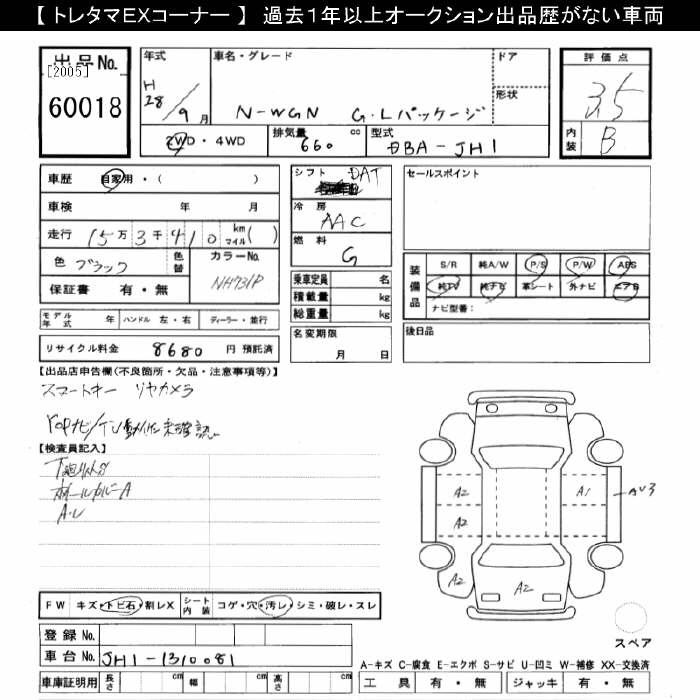 【 トレタマEXコーナー 】 過去１年以上オークション出品歴がない車両
出品No.
[2005]
60018
年式
H
28/9月
車名・グレード
N-WGN G・Lパッケージ
ドア
形状
評価点
3.5
内装
B
2WD・4WD
排気量 660 cc
型式 DBA-JH1
車歴 自家用・( )
車検 年 月
走行 15万3千410 km マイル( )
色 ブラック
色替
カラーNo.
NH731P
保証書 有・無
シフト DAT
冷房
AAC
燃料
G
乗車定員 名
積載量 kg
総重量 kg
セールスポイント
装備品
S/R 純A/W P/S P/W ABS
純TV 純ナビ 革シート 外ナビ エアB
ナビ型番：
モデル年式 年 ハンドル 左・右 ディーラー・並行
名変期限
月 日
後日品
リサイクル料金 8680 円 預託済
【出品店申告欄(不良箇所・欠品・注意事項等)】
スマートキー リヤカメラ
YOPナビ/TV動作未確認
【検査員記入】
ホールカバーA
A・U
A2
A1
AU3
A2
A2
A2
FW キズ・トビ石・割レX シート内装 コゲ・穴・汚レ・シミ・破レ・スレ
スペア
登録No.
車台No. JH1-1310081
A-キズ C-腐食 E-エクボ S-サビ U-凹ミ W-補修 XX-交換済
車庫証明用 長さ cm 幅 cm 高さ cm
工具 有・無 ジャッキ 有・無